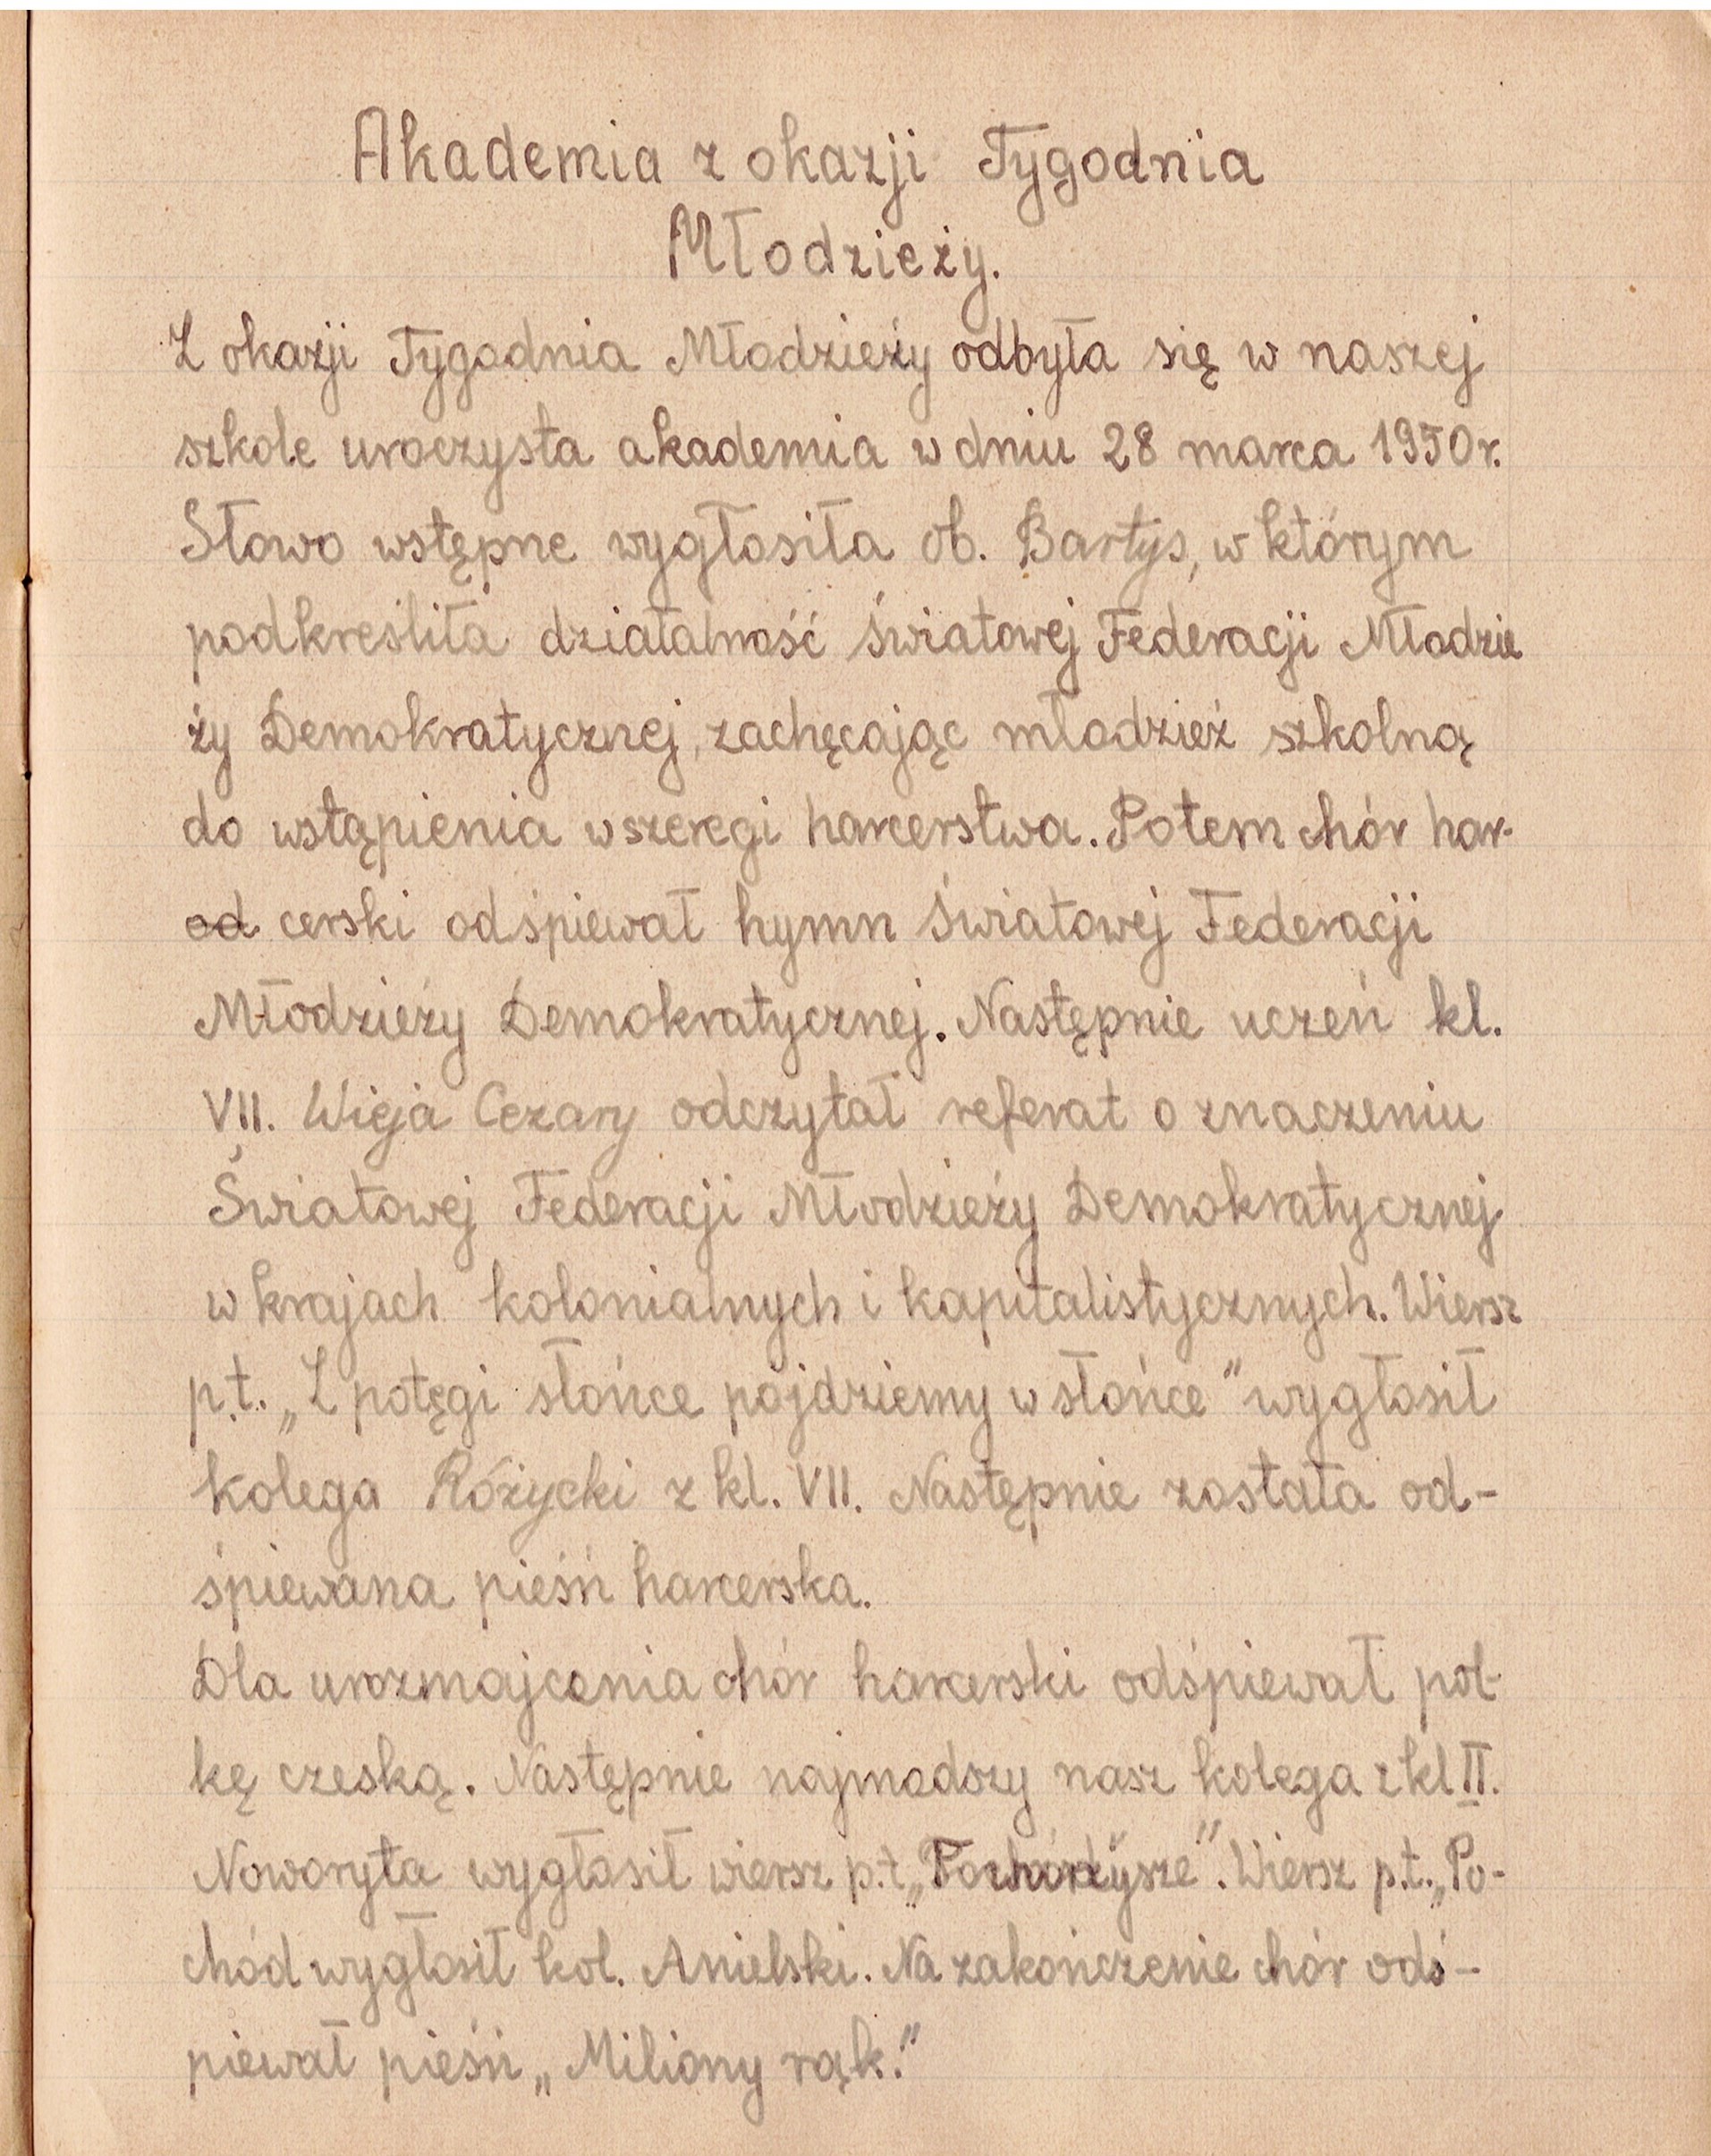 Akademia z okazji Tygodnia
Młodzieży.
Z okazji Tygodnia Młodzieży odbyła się w naszej
szkole uroczysta akademia w dniu 28 marca 1950 r.
Słowo wstępne wygłosiła ob. Bartys, w którym
podkreśliła działalność Światowej Federacji Młodzie
ży Demokratycznej, zachęcając młodzież szkolną
do wstąpienia w szeregi harcerstwa. Potem chór har-
od cerski odśpiewał hymn Światowej Federacji
Młodzieży Demokratycznej. Następnie uczeń kl.
VII. Wieja Cezary odczytał referat o znaczeniu
Światowej Federacji Młodzieży Demokratycznej
w krajach kolonialnych i kapitalistycznych. Wiersz
p.t. „Z potęgi słońce pójdziemy w słońce" wygłosił
kolega Różycki z kl. VII. Następnie została od-
śpiewana pieśń harcerska.
Dla urozmajcenia chór harcerski odśpiewał pol-
kę czeską. Następnie najmodszy nasz kolega z kl II.
Noworyta wygłosił wiersz p.t. Wiersz p.t. „Po-
chód wygłosił kol. Anielski. Na zakończenie chór odś-
piewał pieśń „Miliony rąk."